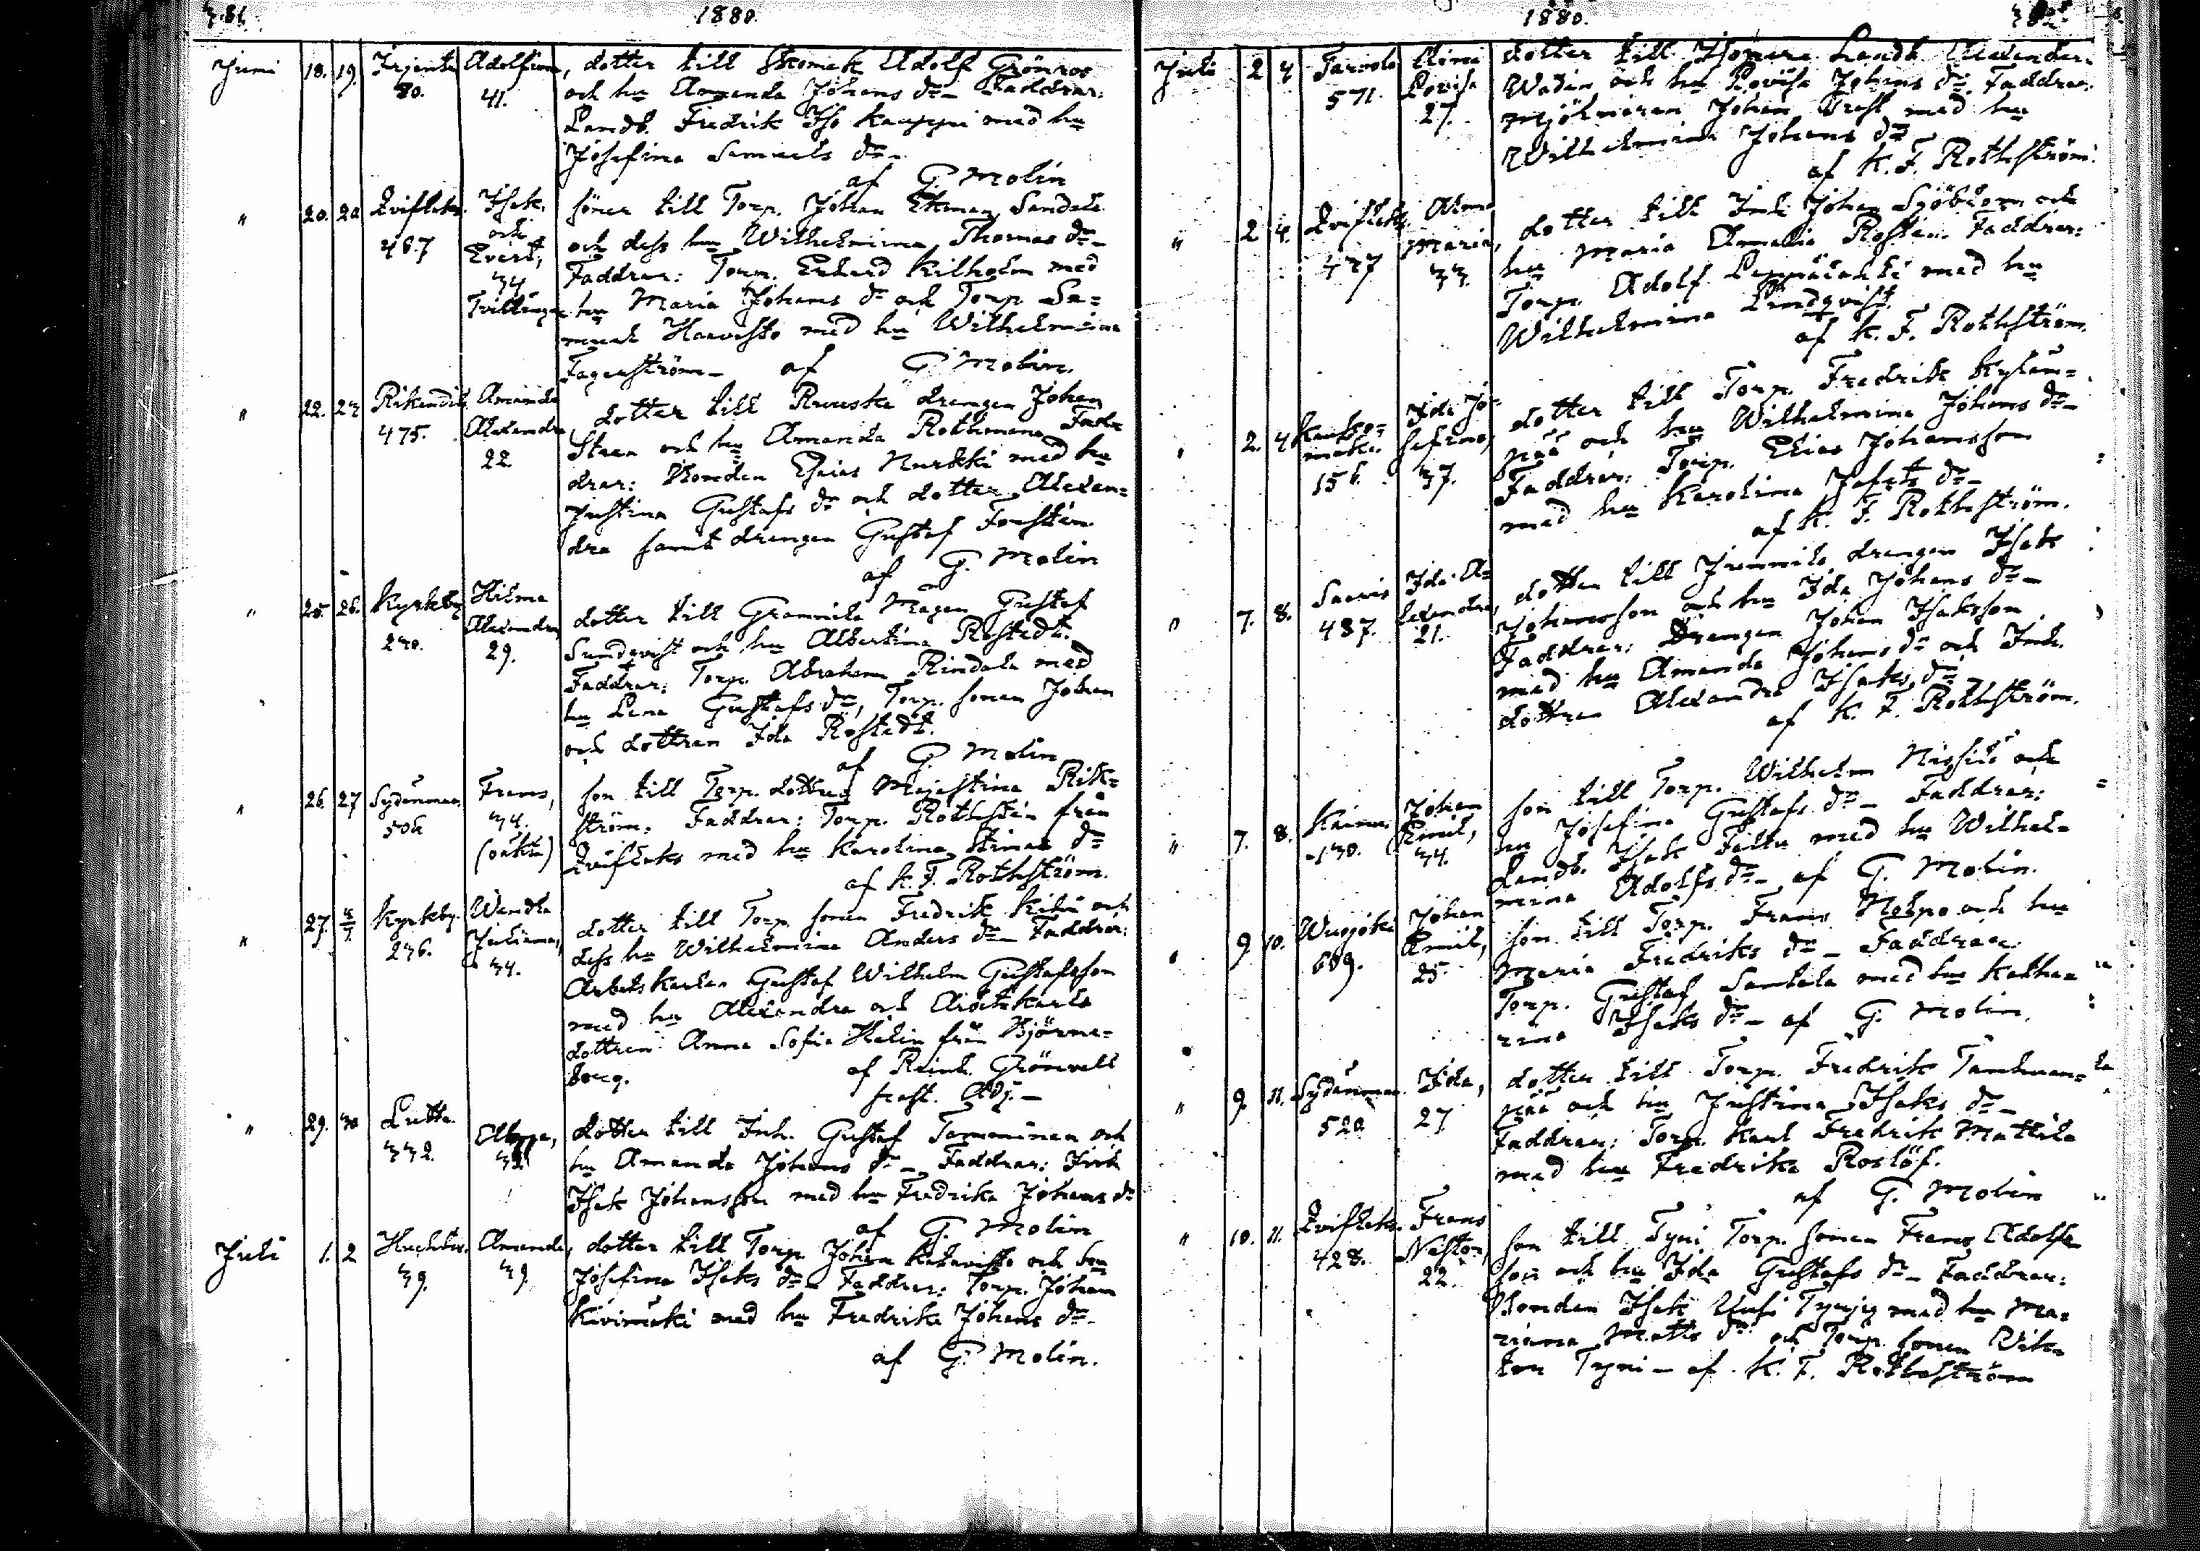 1880.
Juni 18. 19. Adolfina, dotter till Skomak. Adolf Grönroos
80. 41. och hu Amanda Johans dr Faddrar:
Landb. Fredrik Iso Kauppi med hu
Josefina Samuels dr
af G. Molin
" 20. 20 Qviflaks Isak söner till Torp. Johan Ekman Sandala
487 och Evert, och dess hu Wilhelmina Thomas dr
34 Faddrar: Torp. Erhard Kilholm med
Tvillingar hu Maria Johans dr och Torp. Sa=
muel Haavisto med hu Wilhelmina
Fagerström af G. Molin.
" 22. 23 475. Amanda dotter till drengen Johan
Alexandra Sten och hu Amanda Fad
22 drar: Bonden Esaias Nurkki med hu
Justina Gustafs dr och dotter Alexan=
dra samt drengen Gustaf Forsten
af G. Molin
" 25. 26. Kyrkby Hilma dotter till Magen Gustaf
230. Alexandra Sundqvist och hu Albertina Rostedt.
29. Faddrar: Torp. Abraham Rindala med
hu Lena Gustafs dr, Torp. sonen Johan
och dottren Ida Rostedt.
af G. Molin
" 26. 27 Sydänmaa Frans, son till Torp. dottren Majastina Rik=
506 34. ström. Faddrar: Torp. Rothstén från
(oäkta) Qviflaks med hu Karolina Stinas dr
af K. F. Rothström.
" 27. 4/7. Kyrkby Wendla dotter till Torp. sonen Fredrik och
236. Juliana, dess hu Wilhelmina Anders dr Faddrar:
34. Arbetskarlen Gustaf Wilhelm Gustafsson
med hu Alexandra och Arbetskarls
dottren Anna Sofia Helin från Björne=
borg. af Reinh. Grönvall
past. Adj.
" 29. 30 Lutta 332. dotter till Inh. Gustaf Tamminen och
hu Amanda Johans dr Faddrar:
Isak Johansson med hu Fredrika Johans dr
af G. Molin
Juli 1. 2 39. Amanda, dotter till Torp. Johan Katavisto och hu
39. Josefina Isaks dr Faddrar: Torp. Johan
Kivimäki med hu Fredrika Johans dr
af G. Molin.
1880. 382
Juli 2 4 571. Lovisa 27. dotter till Landb. Alexander
Wadén och hu Lovisa Johans dr Faddrar:
mjölnaren Johan med hu
Wilhelmina Johans dr
af K. F. Rothström.
" 2 4. Qviflaks 477 Alma Maria, 33. dotter till Inh. Johan Sjöblom och
hu Maria Amalia Rostén. Faddrar:
Torp. Adolf Leppälahti med hu
Wilhelmina Lindqvist.
af K. F. Rothström.
" 2. 4 156. Ida Jo=
sefina, 37. dotter till Torp. Fredrik Kylän=
pää och hu Wilhelmina Johans dr
Faddrar: Torp. Elias Johansson
med hu Karolina Jafets dr
af K. F. Rothström.
" 7. 8. Suaris 487. Ida A=
lexandra, 21. dotter till Junnila drengen Isak
Johansson och hu Ida Johans dr
Faddrar: Drengen Johan Isaksson
med hu Amanda Johans dr och Inh.
dottren Alexandra Isaks dr
af K. F. Rothström.
" 7. 8. 130. Johan Emil, 34. son till Torp. Wilhelm och
hu Josefina Gustafs dr Faddrar:
Landb. Isak med hu Wilhel=
mina Adolfs dr af G. Molin.
" 9 10. 609. Johan Emil, 25. son till Torp. Frans och hu
Maria Fredriks dr Faddrar:
Torp. Gustaf Santala med hu Katha=
rina Isaks dr af G. Molin.
" 9. 11. Sydänmaa 520. Ida, 27 dotter till Torp. Fredrik
pää och hu Justina Isaks dr
Faddrar: Torp. Karl Fredrik Mattila
med hu Fredrika Roslöf.
af G. Molin
" 10. 11. Qviflaks 428. Frans Nestor, 22. son till Tyni Torp. sonen Frans Adolfs
son och hu Ida Gustafs dr Faddrar:
Bonden Isak Uusi med hu Ma=
rianna Matts dr och Torp. sonen Vik=
tor Tyni af K. F. Rothström